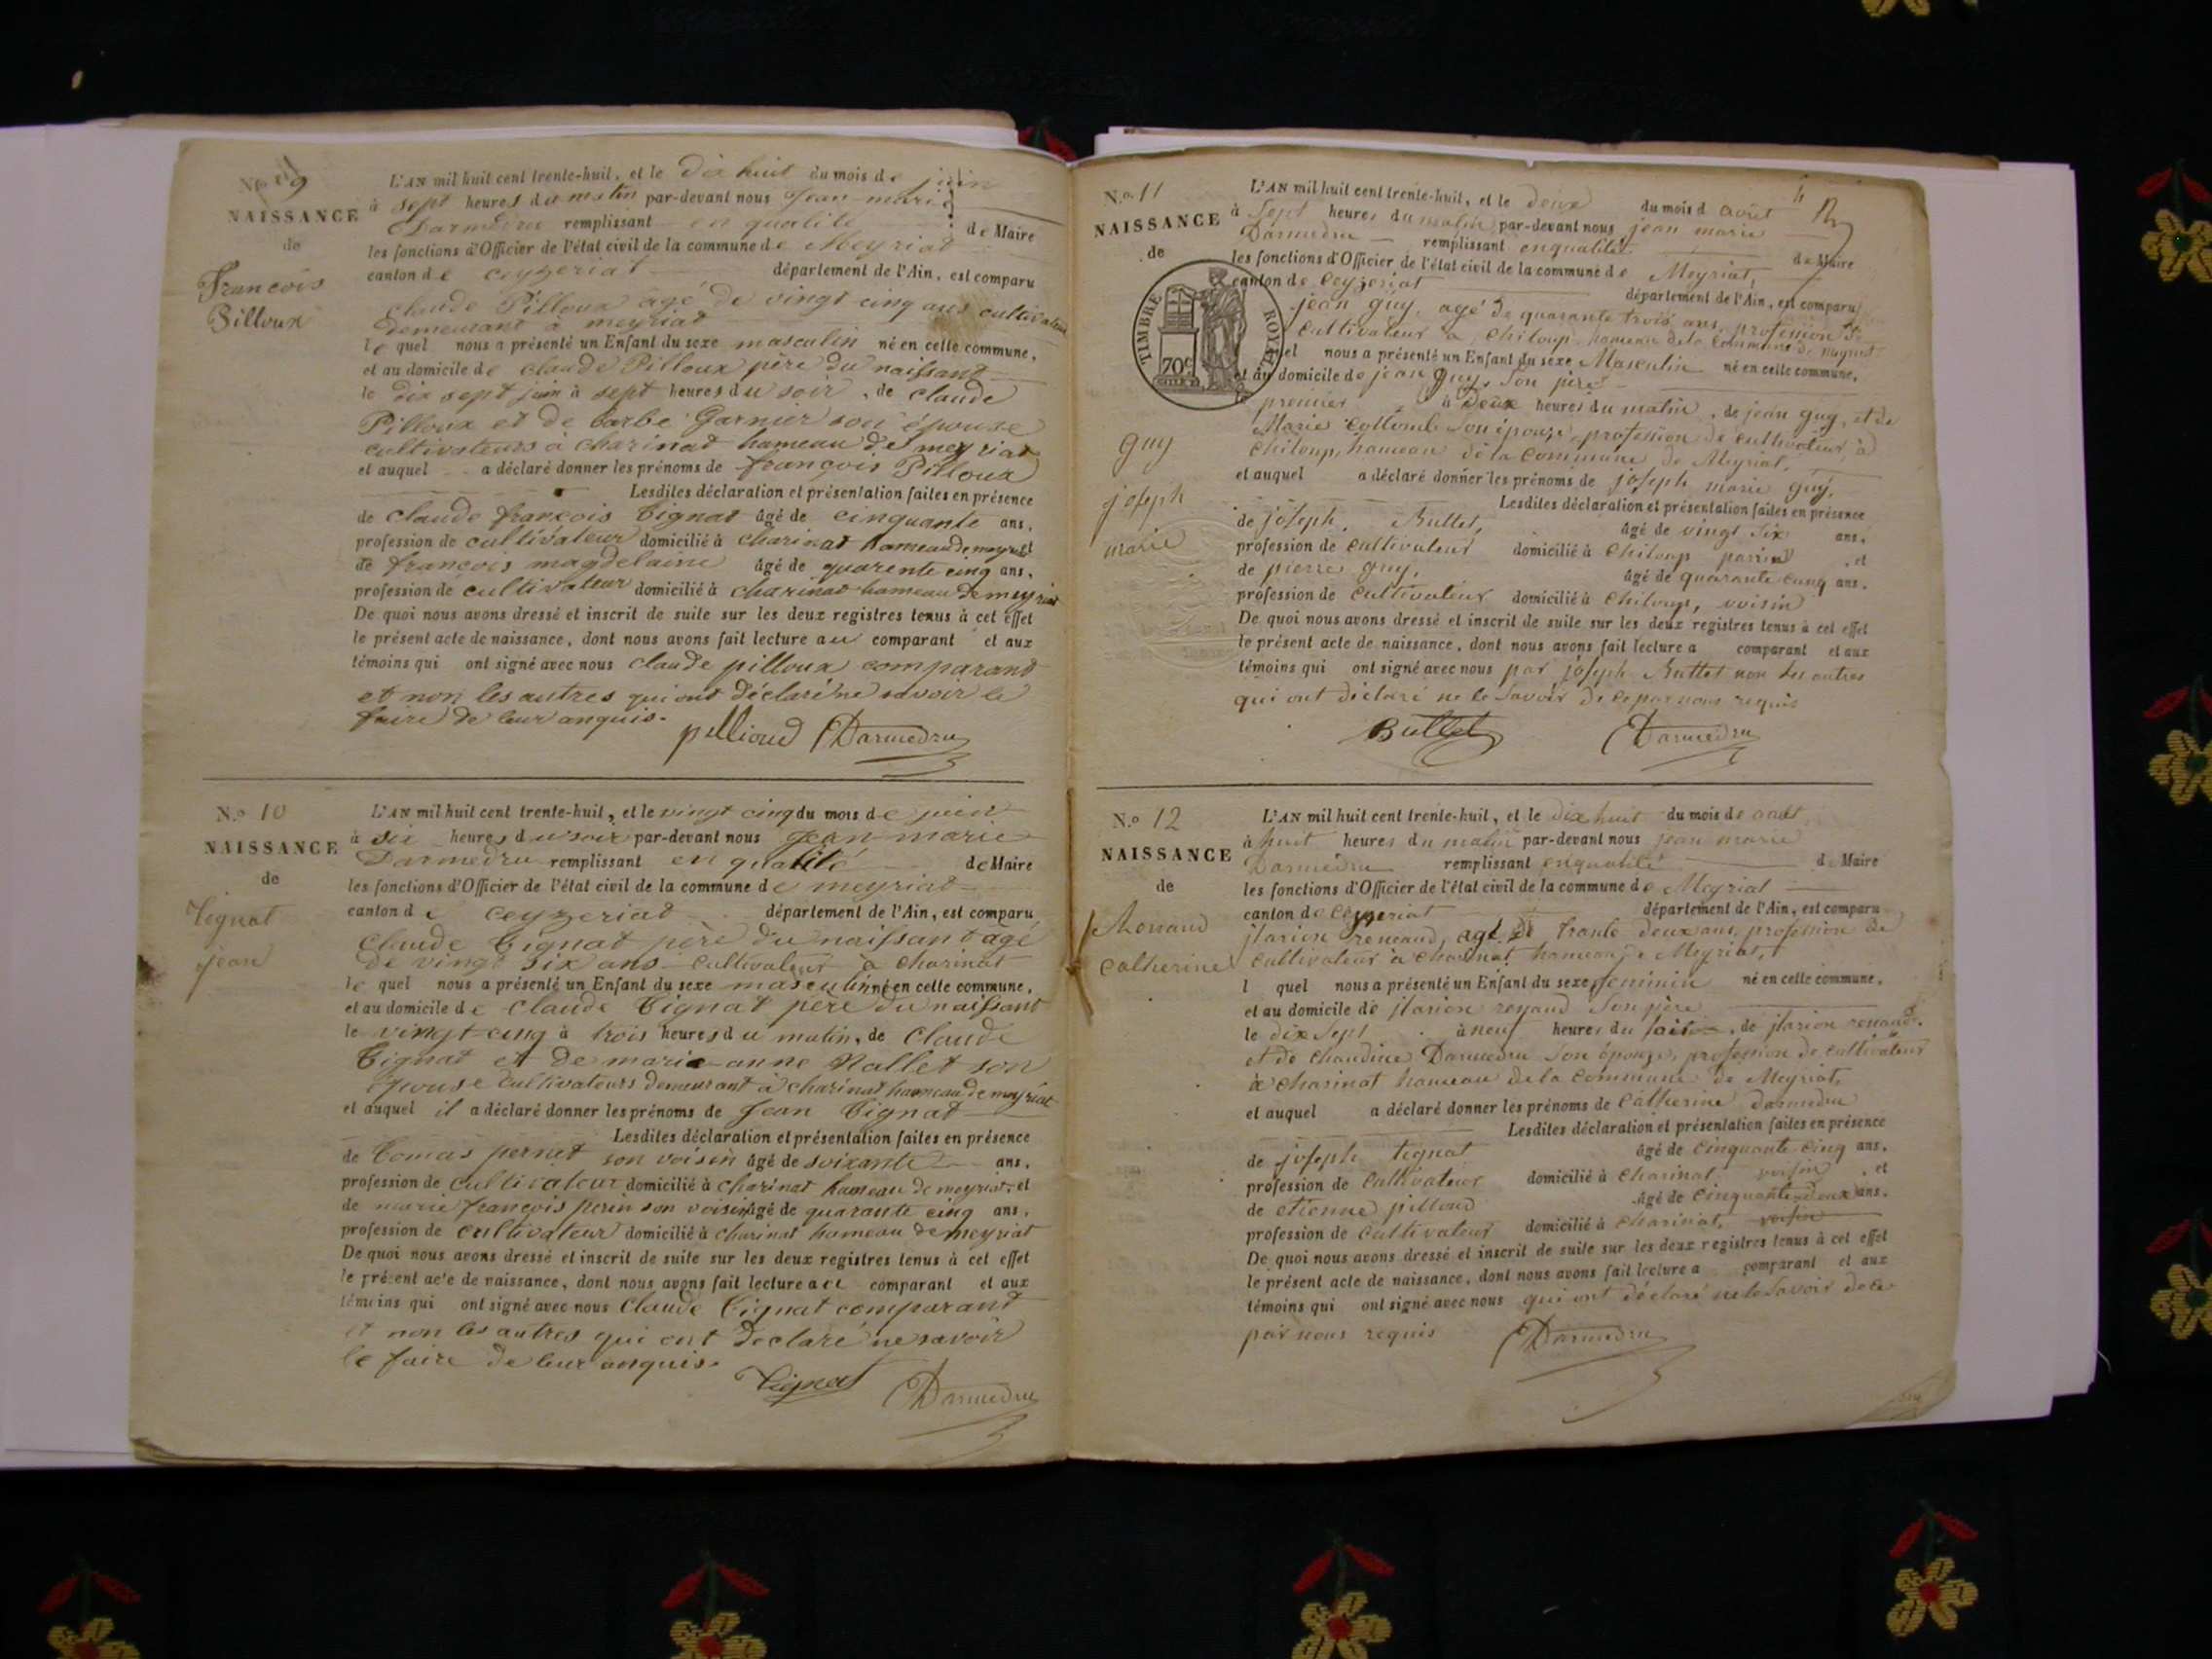 N.o 9
NAISSANCE
de
François
Pilloux
L'AN mil huit cent trente-huit, et le dix huit du mois de juin
à sept heures du matin par-devant nous Jean-marie
Darmedru remplissant en qualité de Maire
les fonctions d'Officier de l'état civil de la commune de Meyriat
canton de ceyzeriat département de l'Ain, est comparu
claude Pilloux âgé de vingt cinq ans cultivateur
demeurant à meyriat
le quel nous a présenté un Enfant du sexe masculin né en cette commune,
et au domicile de claude Pilloux père du naissant
le dix sept juin à sept heures du soir, de claude
Pilloux et de barbe Garnier son épouse
cultivateurs à charinat hameau de meyriat
et auquel a déclaré donner les prénoms de françois Pilloux
Lesdites déclaration et présentation faites en présence
de claude françois Tignat âgé de cinquante ans,
profession de cultivateur domicilié à charinat hameau de meyriat et
de françois magdelaine âgé de quarente cinq ans,
profession de cultivateur domicilié à charinat hameau de meyriat
De quoi nous avons dressé et inscrit de suite sur les deux registres tenus à cet effet
le présent acte de naissance, dont nous avons fait lecture au comparant et aux
témoins qui ont signé avec nous claude pilloux comparant
et non les autres qui ont déclaré ne savoir le
faire de leur anquis.
pillioud Darmedru
N.o 10
NAISSANCE
de
Tignat
jean
L'AN mil huit cent trente-huit, et le vingt cinq du mois de juin
à six heures du soir par-devant nous Jean-marie
Darmedru remplissant en qualité de Maire
les fonctions d'Officier de l'état civil de la commune de meyriat
canton de ceyzeriat département de l'Ain, est comparu
Claude Tignat père du naissant âgé
de vingt six ans cultivateur à charinat
le quel nous a présenté un Enfant du sexe masculin né en cette commune,
et au domicile de Claude Tignat père du naissant
le vingt-cinq à trois heures du matin, de Claude
Tignat et de marie-anne Nallet son
épouse cultivateurs demeurant à charinat hameau de meyriat
et auquel il a déclaré donner les prénoms de Jean Tignat
Lesdites déclaration et présentation faites en présence
de Tomas pernet son voisin âgé de soixante ans,
profession de cultivateur domicilié à charinat hameau de meyriat, et
de marie françois perin son voisin âgé de quarante cinq ans,
profession de cultivateur domicilié à charinat hameau de meyriat
De quoi nous avons dressé et inscrit de suite sur les deux registres tenus à cet effet
le présent acte de naissance, dont nous avons fait lecture au comparant et aux
témoins qui ont signé avec nous Claude Tignat comparant
et non les autres qui ont declaré ne savoir
le faire de leur anquis.
Tignat Darmedru
N.o 11
NAISSANCE
de
TIMBRE ROYAL
70c
guy
joseph
marie
L'AN mil huit cent trente-huit, et le deux du mois d août
à Sept heures du matin par-devant nous jean marie
Darmedru remplissant enqualité de Maire
les fonctions d'Officier de l'état civil de la commune de Meyriat,
canton de Ceyzeriat département de l'Ain, est comparu
jean guy, agé de quarante trois ans, profession de
Cultivateur à Chiloup hameau de la Commune de meyriat
quel nous a présenté un Enfant du sexe Masculin né en cette commune,
et au domicile de jean guy, Son père
le premier à Deux heures du matin, de jean guy, et de
Marie Collomb Son épouse, profession de cultivateur, à
Chiloup, hameau de la Commune de Meyriat,
et auquel a déclaré donner les prénoms de joseph marie guy,
Lesdites déclaration et présentation faites en présence
de joseph Buttet, âgé de vingt Six ans,
profession de Cultivateur domicilié à Chiloup et
de pierre guy, âgé de quarante Cinq ans.
profession de Cultivateur domicilié à Chiloup, voisin
De quoi nous avons dressé et inscrit de suite sur les deux registres tenus à cet effet
le présent acte de naissance, dont nous avons fait lecture a comparant et aux
témoins qui ont signé avec nous par joseph Buttet non les autres
qui ont déclaré ne le Savoir de ce par nous requis
Buttet Darmedru
N.o 12
NAISSANCE
de
Renaud
Catherine
L'AN mil huit cent trente-huit, et le dix huit du mois de août
à huit heures du matin par-devant nous jean marie
Darmedru remplissant enqualité de Maire
les fonctions d'Officier de l'état civil de la commune de Meyriat
canton de Ceyzeriat département de l'Ain, est comparu
jlarion reneaud, agé de trante deux ans, profession de
Cultivateur à charinat hameau de Meyriat,
l quel nous a présenté un Enfant du sexe feminin né en cette commune,
et au domicile de jlarion renaud Son père
le dix Sept à neuf heures du soir, de jlarion renaud
et de Claudine Darmedru Son épouse, profession de Cultivateur
à charinat hameau de la Commune de Meyriat,
et auquel a déclaré donner les prénoms de Catherine darmedru
Lesdites déclaration et présentation faites en présence
de joseph tignat âgé de Cinquante Cinq ans,
profession de Cultivateur domicilié à Charinat voisin, et
de etienne pilloud âgé de Cinquante-Deux ans.
profession de Cultivateur domicilié à Charinat, voisin
De quoi nous avons dressé et inscrit de suite sur les deux registres tenus à cet effet
le présent acte de naissance, dont nous avons fait lecture a comparant et aux
témoins qui ont signé avec nous qui ont déclaré ne le Savoir de ce
par nous requis Darmedru